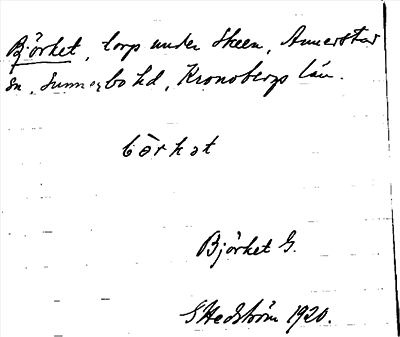 Björket, torp under Skeen, Annerstad
sn, Sunnerbo hd, Kronobergs län.
börkət
Björket G.
S Hedström 1920.